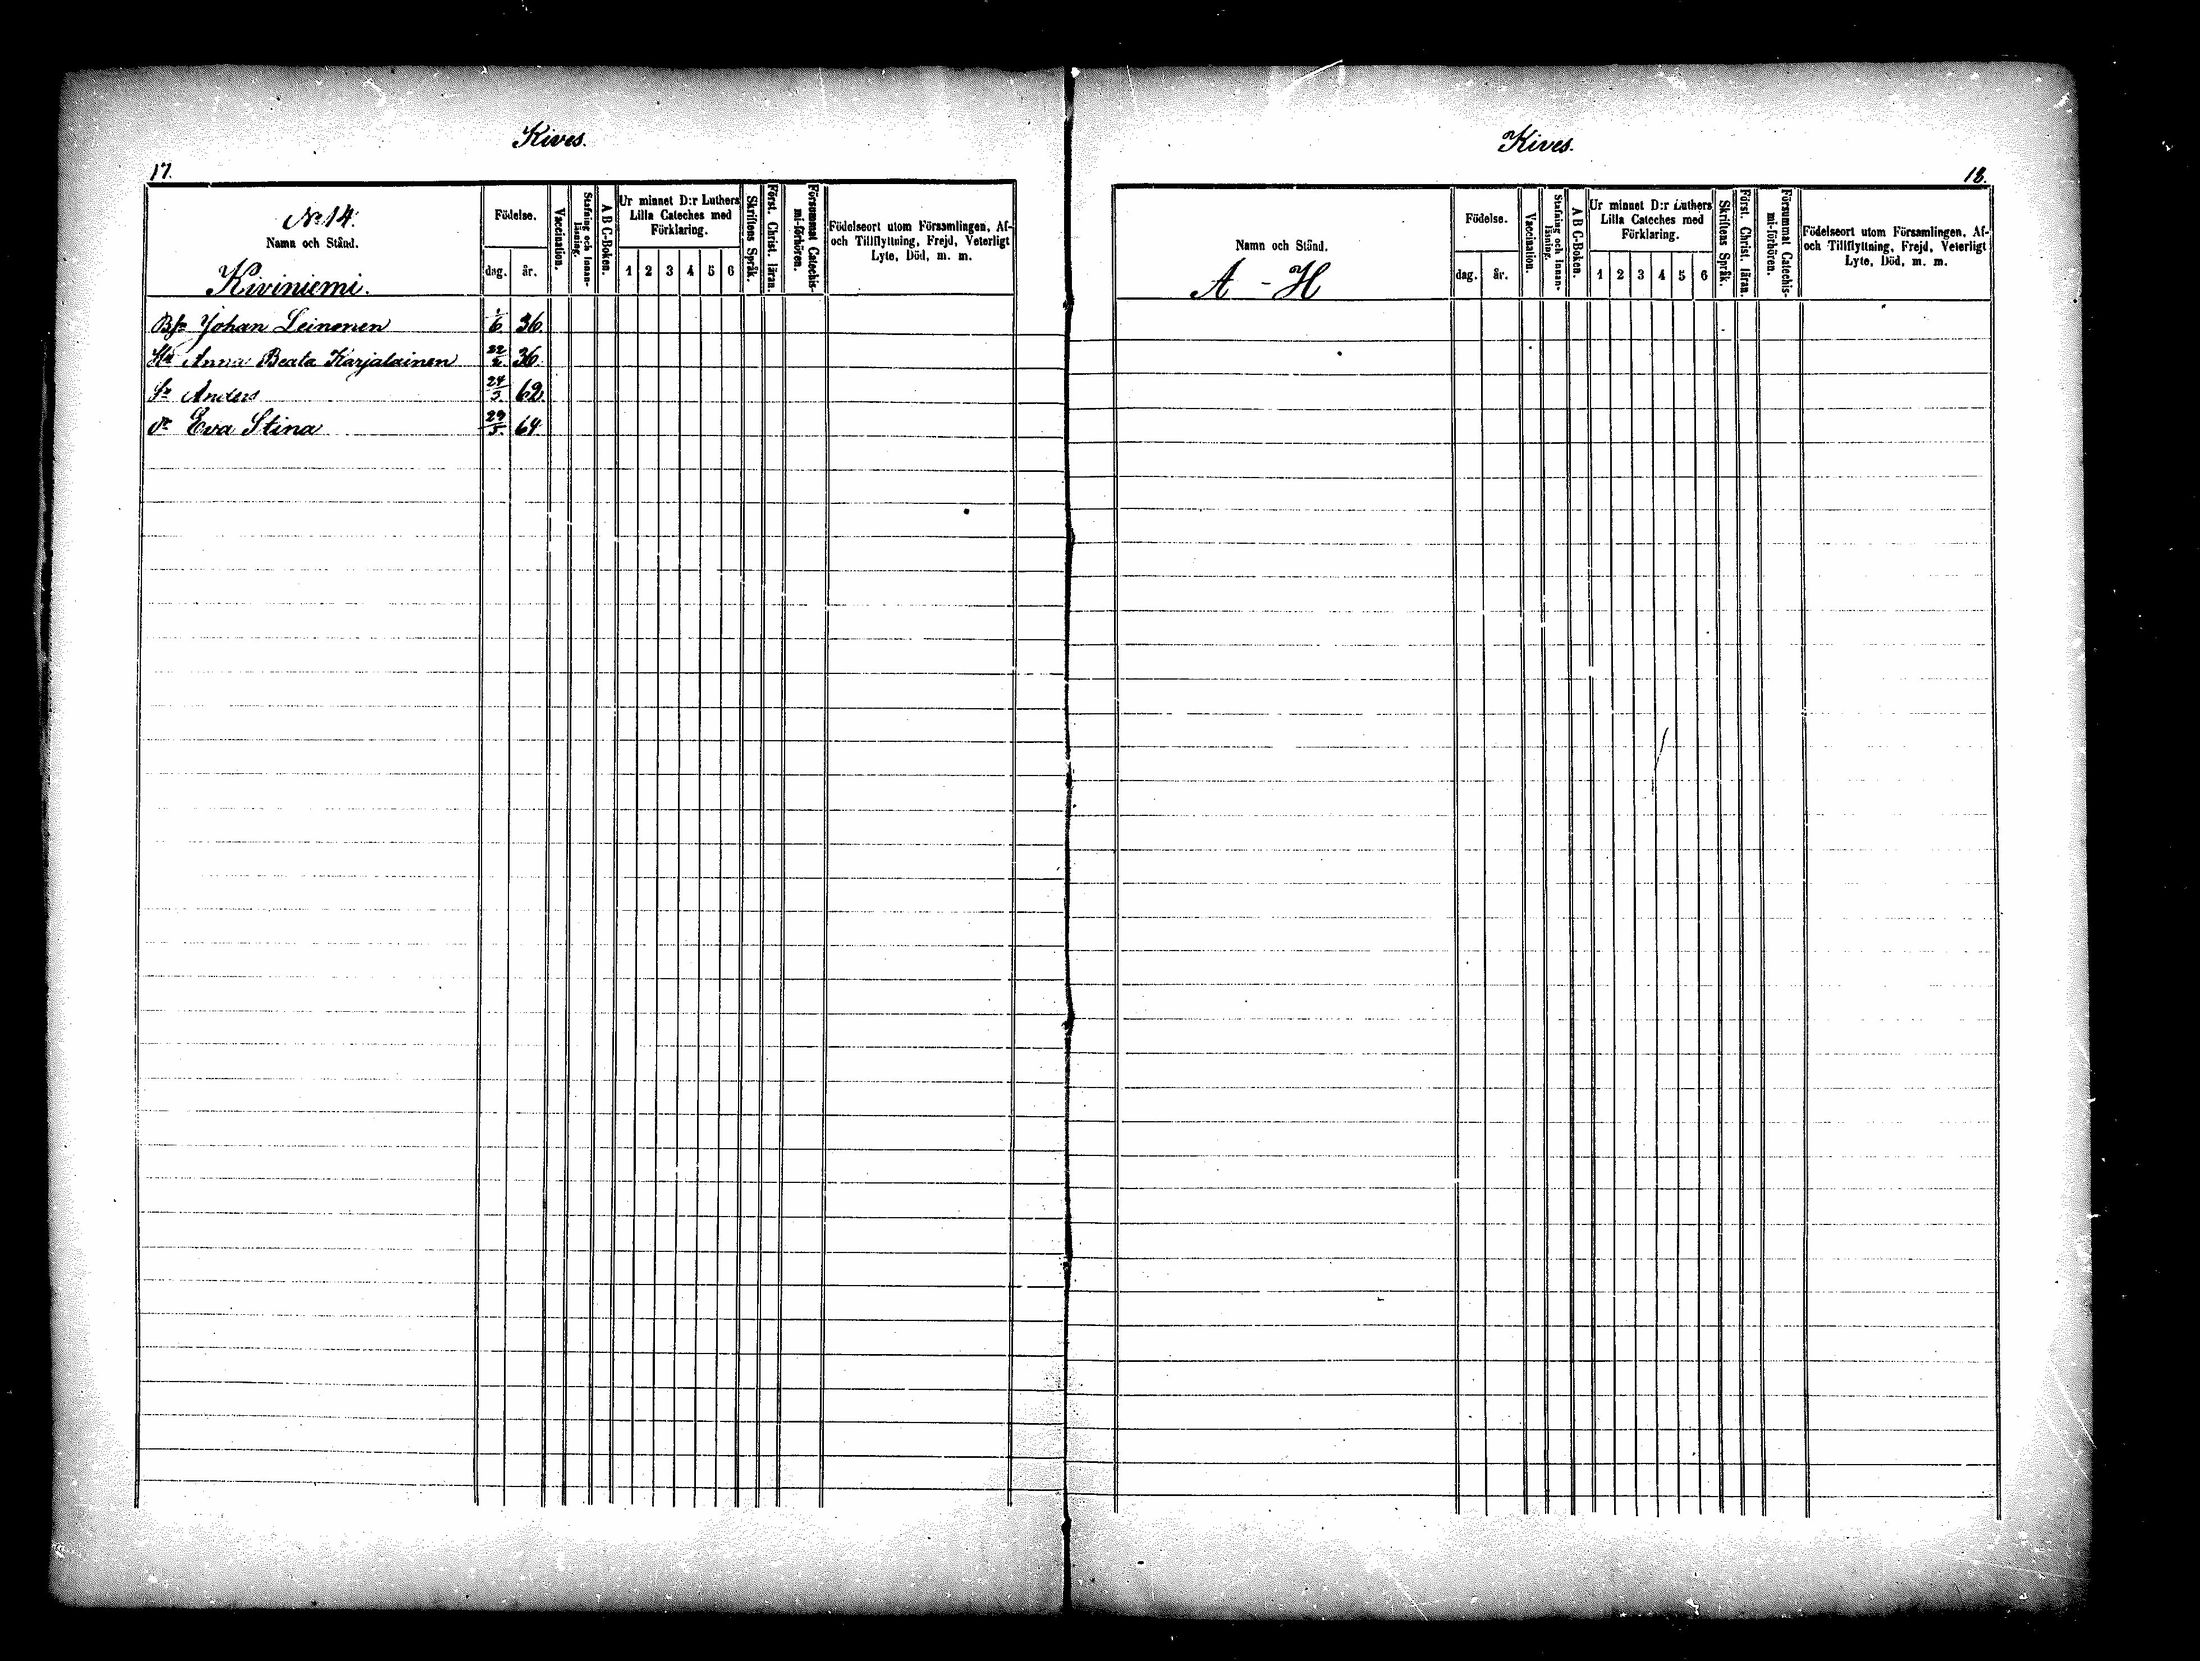 Kives.
17.
No 14.
Namn och Stånd.
Kiviniemi.
Födelse.
dag. år.
Vaccination.
Stafning och Innan-läsning.
A B C-Boken.
Ur minnet D:r Luthers
Lilla Cateches med
Förklaring.
1 2 3 4 5 6
Skriftens Språk.
Först. Christ. läran.
Försummat Catechis-mi-förhören.
Födelseort utom Församlingen, Af-
och Tillflyttning, Frejd, Veterligt
Lyte, Död, m. m.
Johan Leinonen 1/6 36
Anna Beata Karjalainen 36.
Sr Anders 24/5 62.
dr Eva Stina 29/5 64
Kives.
18.
Namn och Stånd.
A - H
Födelse.
dag. år.
Vaccination.
Stafning och Innan-läsning.
A B C-Boken.
Ur minnet D:r Luthers
Lilla Cateches med
Förklaring.
1 2 3 4 5 6
Skriftens Språk.
Först. Christ. läran.
Försummat Catechis-mi-förhören.
Födelseort utom Församlingen, Af-
och Tillflyttning, Frejd, Veterligt
Lyte, Död, m. m.